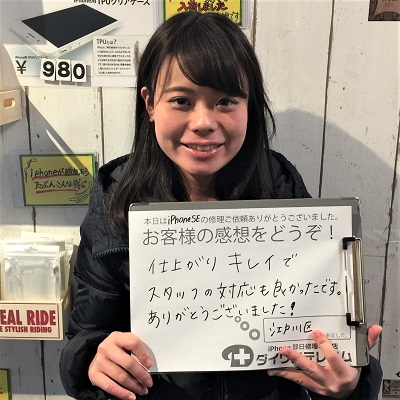 iPhoneSE
TPUクリアケース
TPUとは?
¥ 980
入荷しました
iphoneが壊れたら
たぶんこんな感じ
REAL RIDE
STYLISH RIDING
本日はiPhoneSEの修理ご依頼ありがとうございました。
お客様の感想をどうぞ!
仕上がり キレイで
スタッフの対応も良かったです。
ありがとうございました!
江戸川区
来ました。
iPhone即日修理
店
ダイワンテレコム